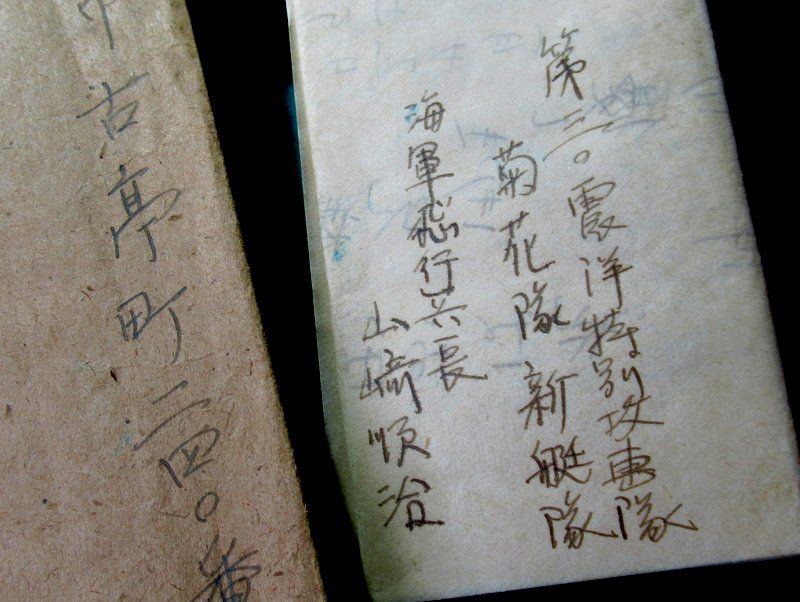 第三〇震洋特別攻撃隊
菊花隊新艇隊
海軍飛行兵長
山崎順治
市古亭町二四〇番